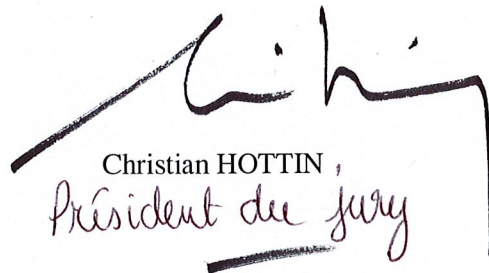 Christian HOTTIN
Président du jury